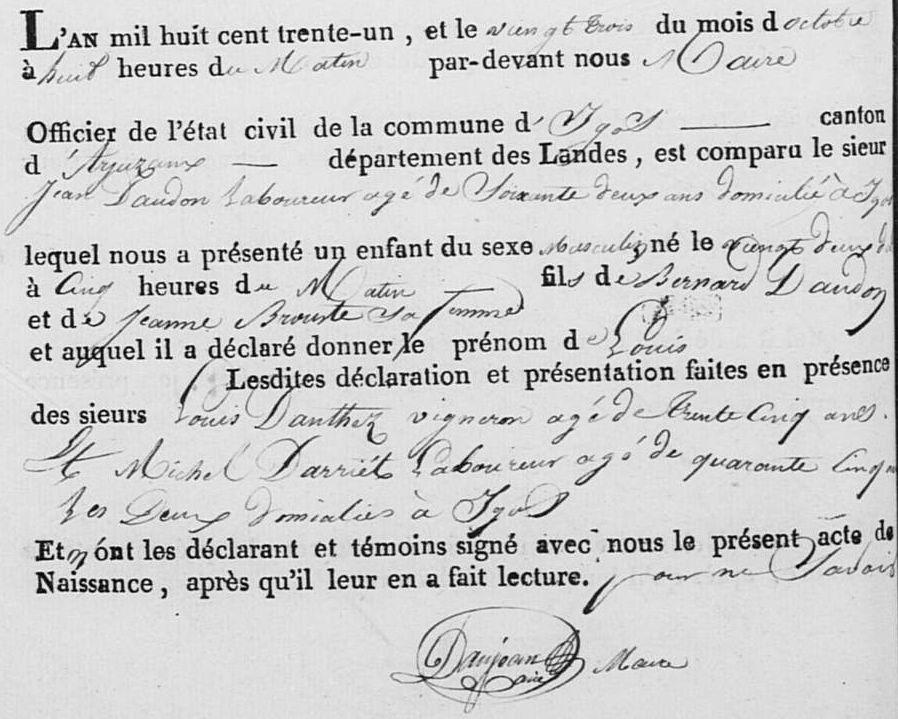 L'AN mil huit cent trente-un, et le vingt trois du mois d octobre
à huit heures du Matin par-devant nous Maire
Officier de l'état civil de la commune d' Ygos canton
d 'Arjuzanx département des Landes, est comparu le sieur
Jean Daudon Laboureur agé de Soixante deux ans domicilié à Ygos
lequel nous a présenté un enfant du sexe Masculin né le vingt deux du
à Cinq heures du Matin fils de Bernard Daudon
et de Jeanne Brouste sa femme
et auquel il a déclaré donner le prénom de Louis
Lesdites déclaration et présentation faites en présence
des sieurs Louis Danthez vigneron agé de trente Cinq ans.
Et Michel Darriét Laboureur agé de quarante Cinq
Les Deux domiciliés à Ygos
Et n'ont les déclarant et témoins signé avec nous le présent acte de
Naissance, après qu'il leur en a fait lecture. pour ne Savoir
Maire